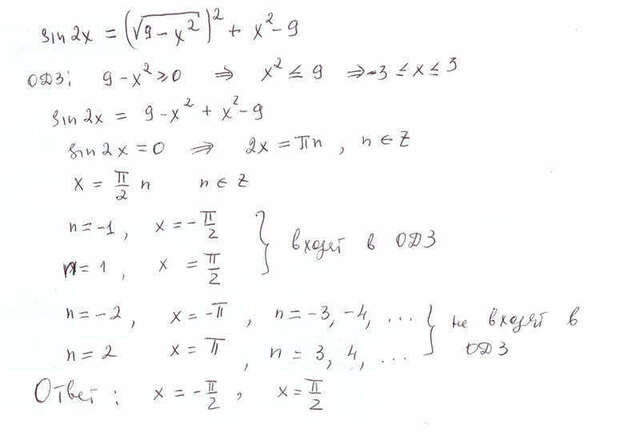 sin2x = (√(9 - x²))² + x² - 9
ОДЗ: 9 - x² ⩾ 0 ⇒ x² ≤ 9 ⇒ -3 ≤ x ≤ 3
sin2x = 9 - x² + x² - 9
sin2x = 0 ⇒ 2x = πn, n ∈ Z
x = π/2 n n ∈ Z
n = -1, x = -π/2
n = 1, x = π/2 } входят в ОДЗ
n = -2, x = -π, n = -3, -4, ...
n = 2 x = π, n = 3, 4, ... } не входят в ОДЗ
Ответ: x = -π/2, x = π/2